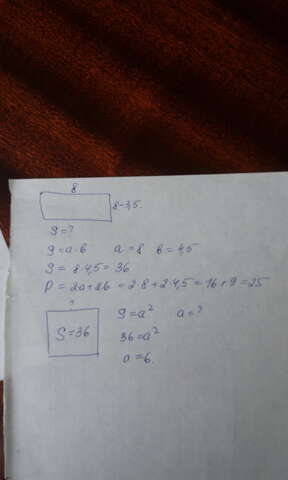 8
8-3,5
S=?
S=a·b a=8 b=4,5
S= 8·4,5= 36
P= 2a+2b = 2·8+2·4,5= 16+9=25
?
S=36
S=a² a=?
36=a²
a=6.